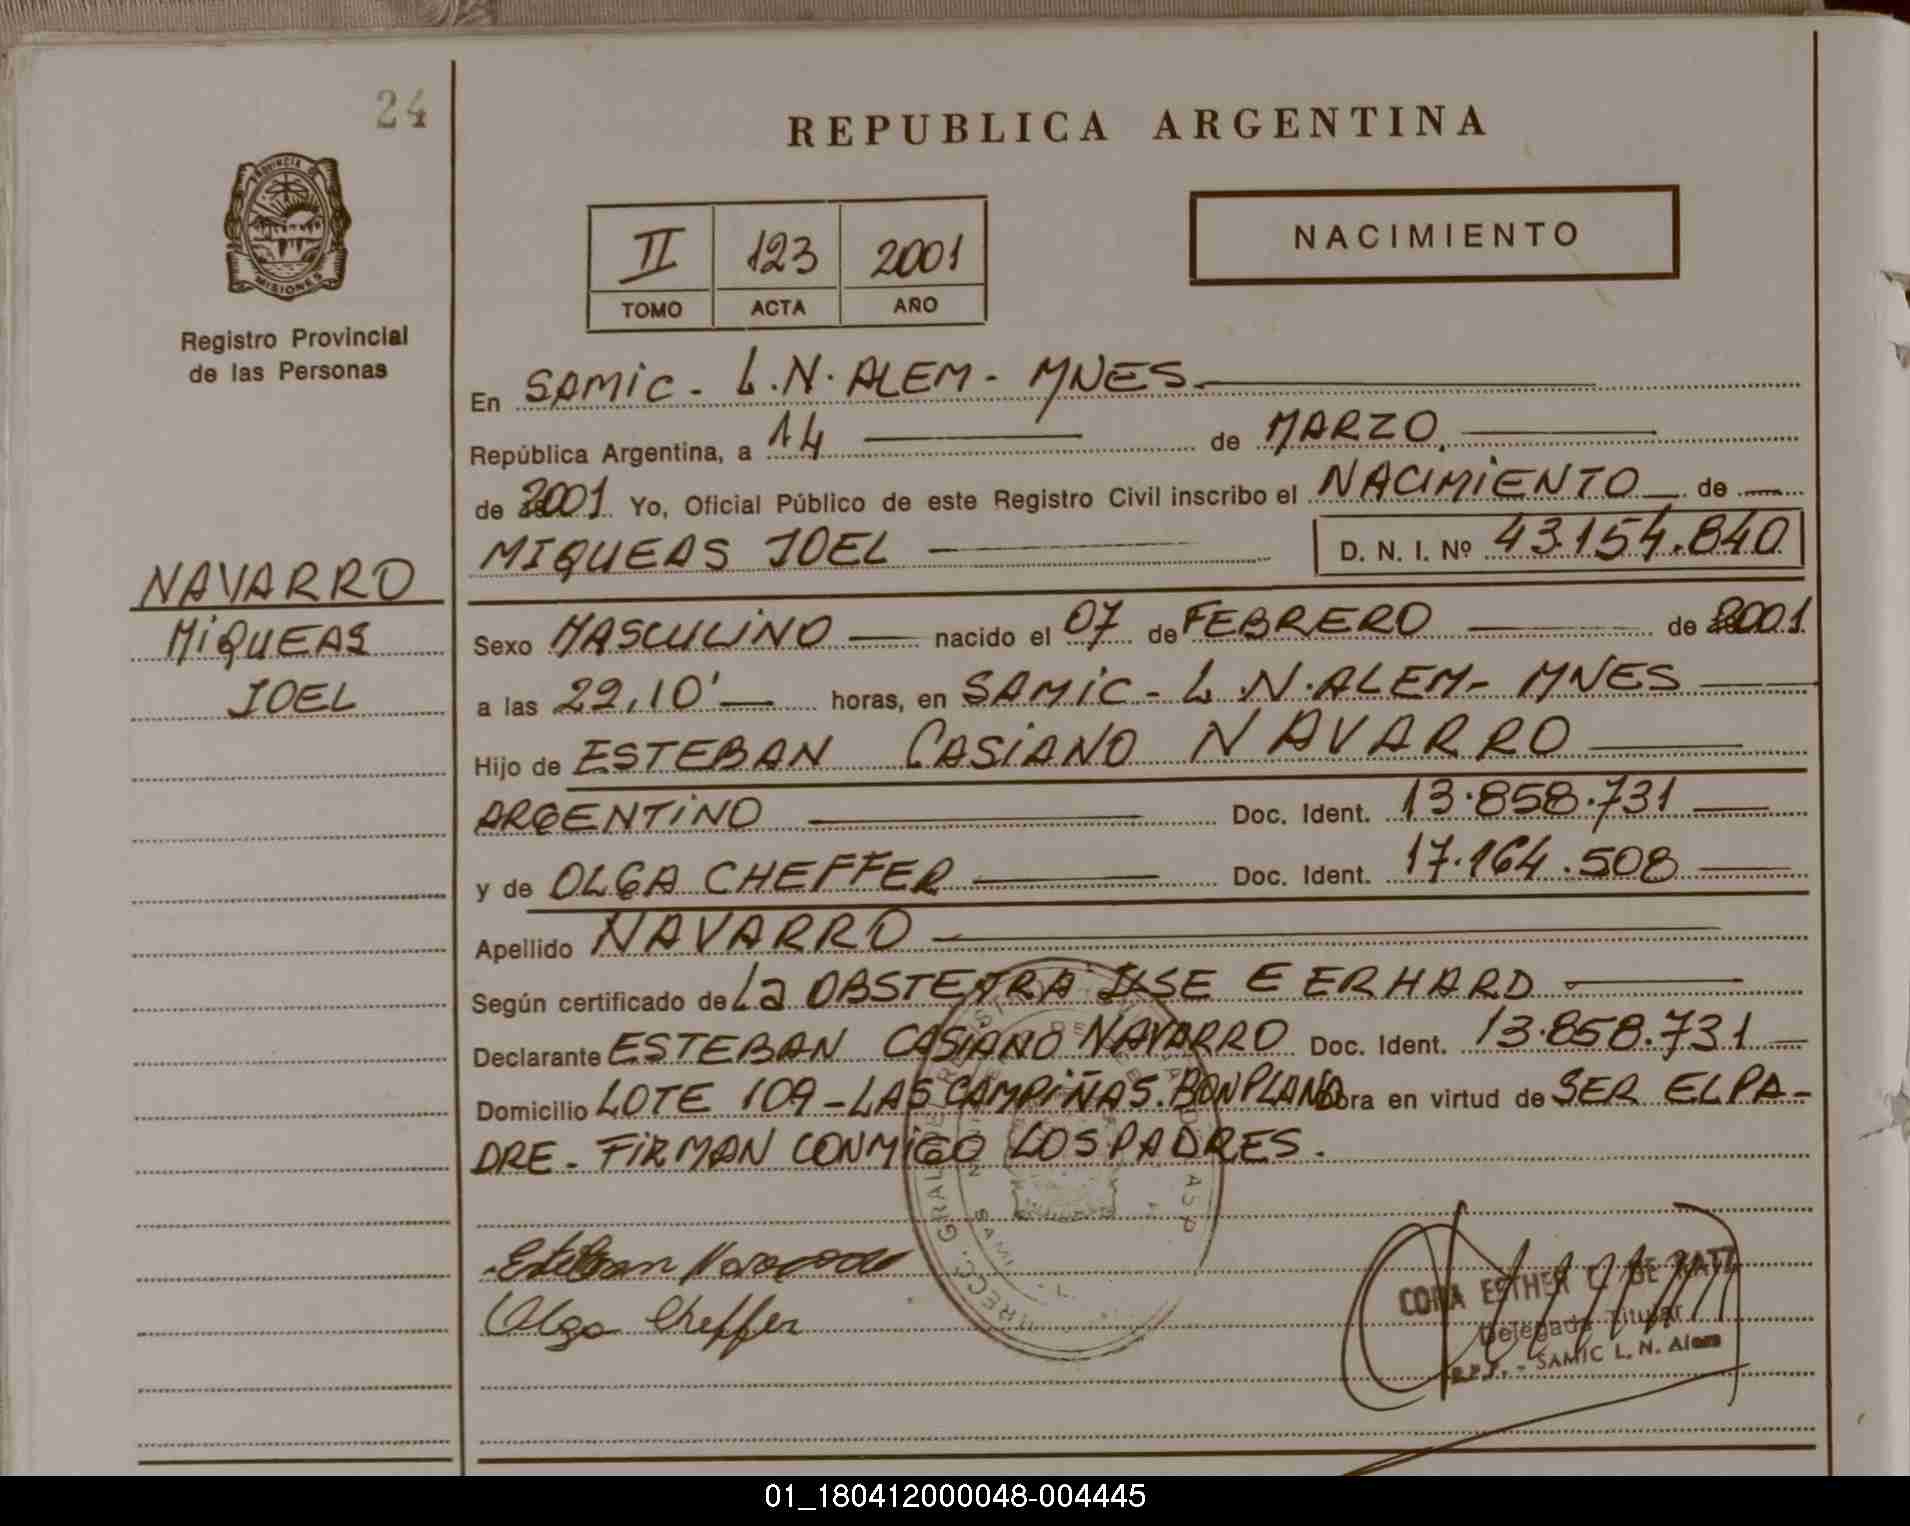 24
REPUBLICA ARGENTINA
PROVINCIA DE
MISIONES
Registro Provincial
de las Personas
II 123 2001
TOMO ACTA AÑO
NACIMIENTO
En SAMIC - L.N. ALEM - MNES.
República Argentina, a 14 de MARZO.
de 2001 Yo, Oficial Público de este Registro Civil inscribo el NACIMIENTO de
MIQUEAS JOEL D. N. I. Nº 43.154.840
NAVARRO
MIQUEAS
JOEL
Sexo MASCULINO nacido el 07 de FEBRERO de 2001
a las 22,10' horas, en SAMIC - L.N. ALEM - MNES
Hijo de ESTEBAN CASIANO NAVARRO
ARGENTINO Doc. Ident. 13.858.731
y de OLGA CHEFFER Doc. Ident. 17.164.508
Apellido NAVARRO
Según certificado de La OBSTETRA ILSE E ERHARD
Declarante ESTEBAN CASIANO NAVARRO Doc. Ident. 13.858.731
Domicilio LOTE 109 - LAS CAMPIÑAS. BONPLAND obra en virtud de SER EL PA-
DRE. FIRMAN CONMIGO LOS PADRES.
Esteban Navarro
Olga Cheffer
ESTHER DE
Delegada Titular
R.P.P. - SAMIC L. N. Alem
01_180412000048-004445